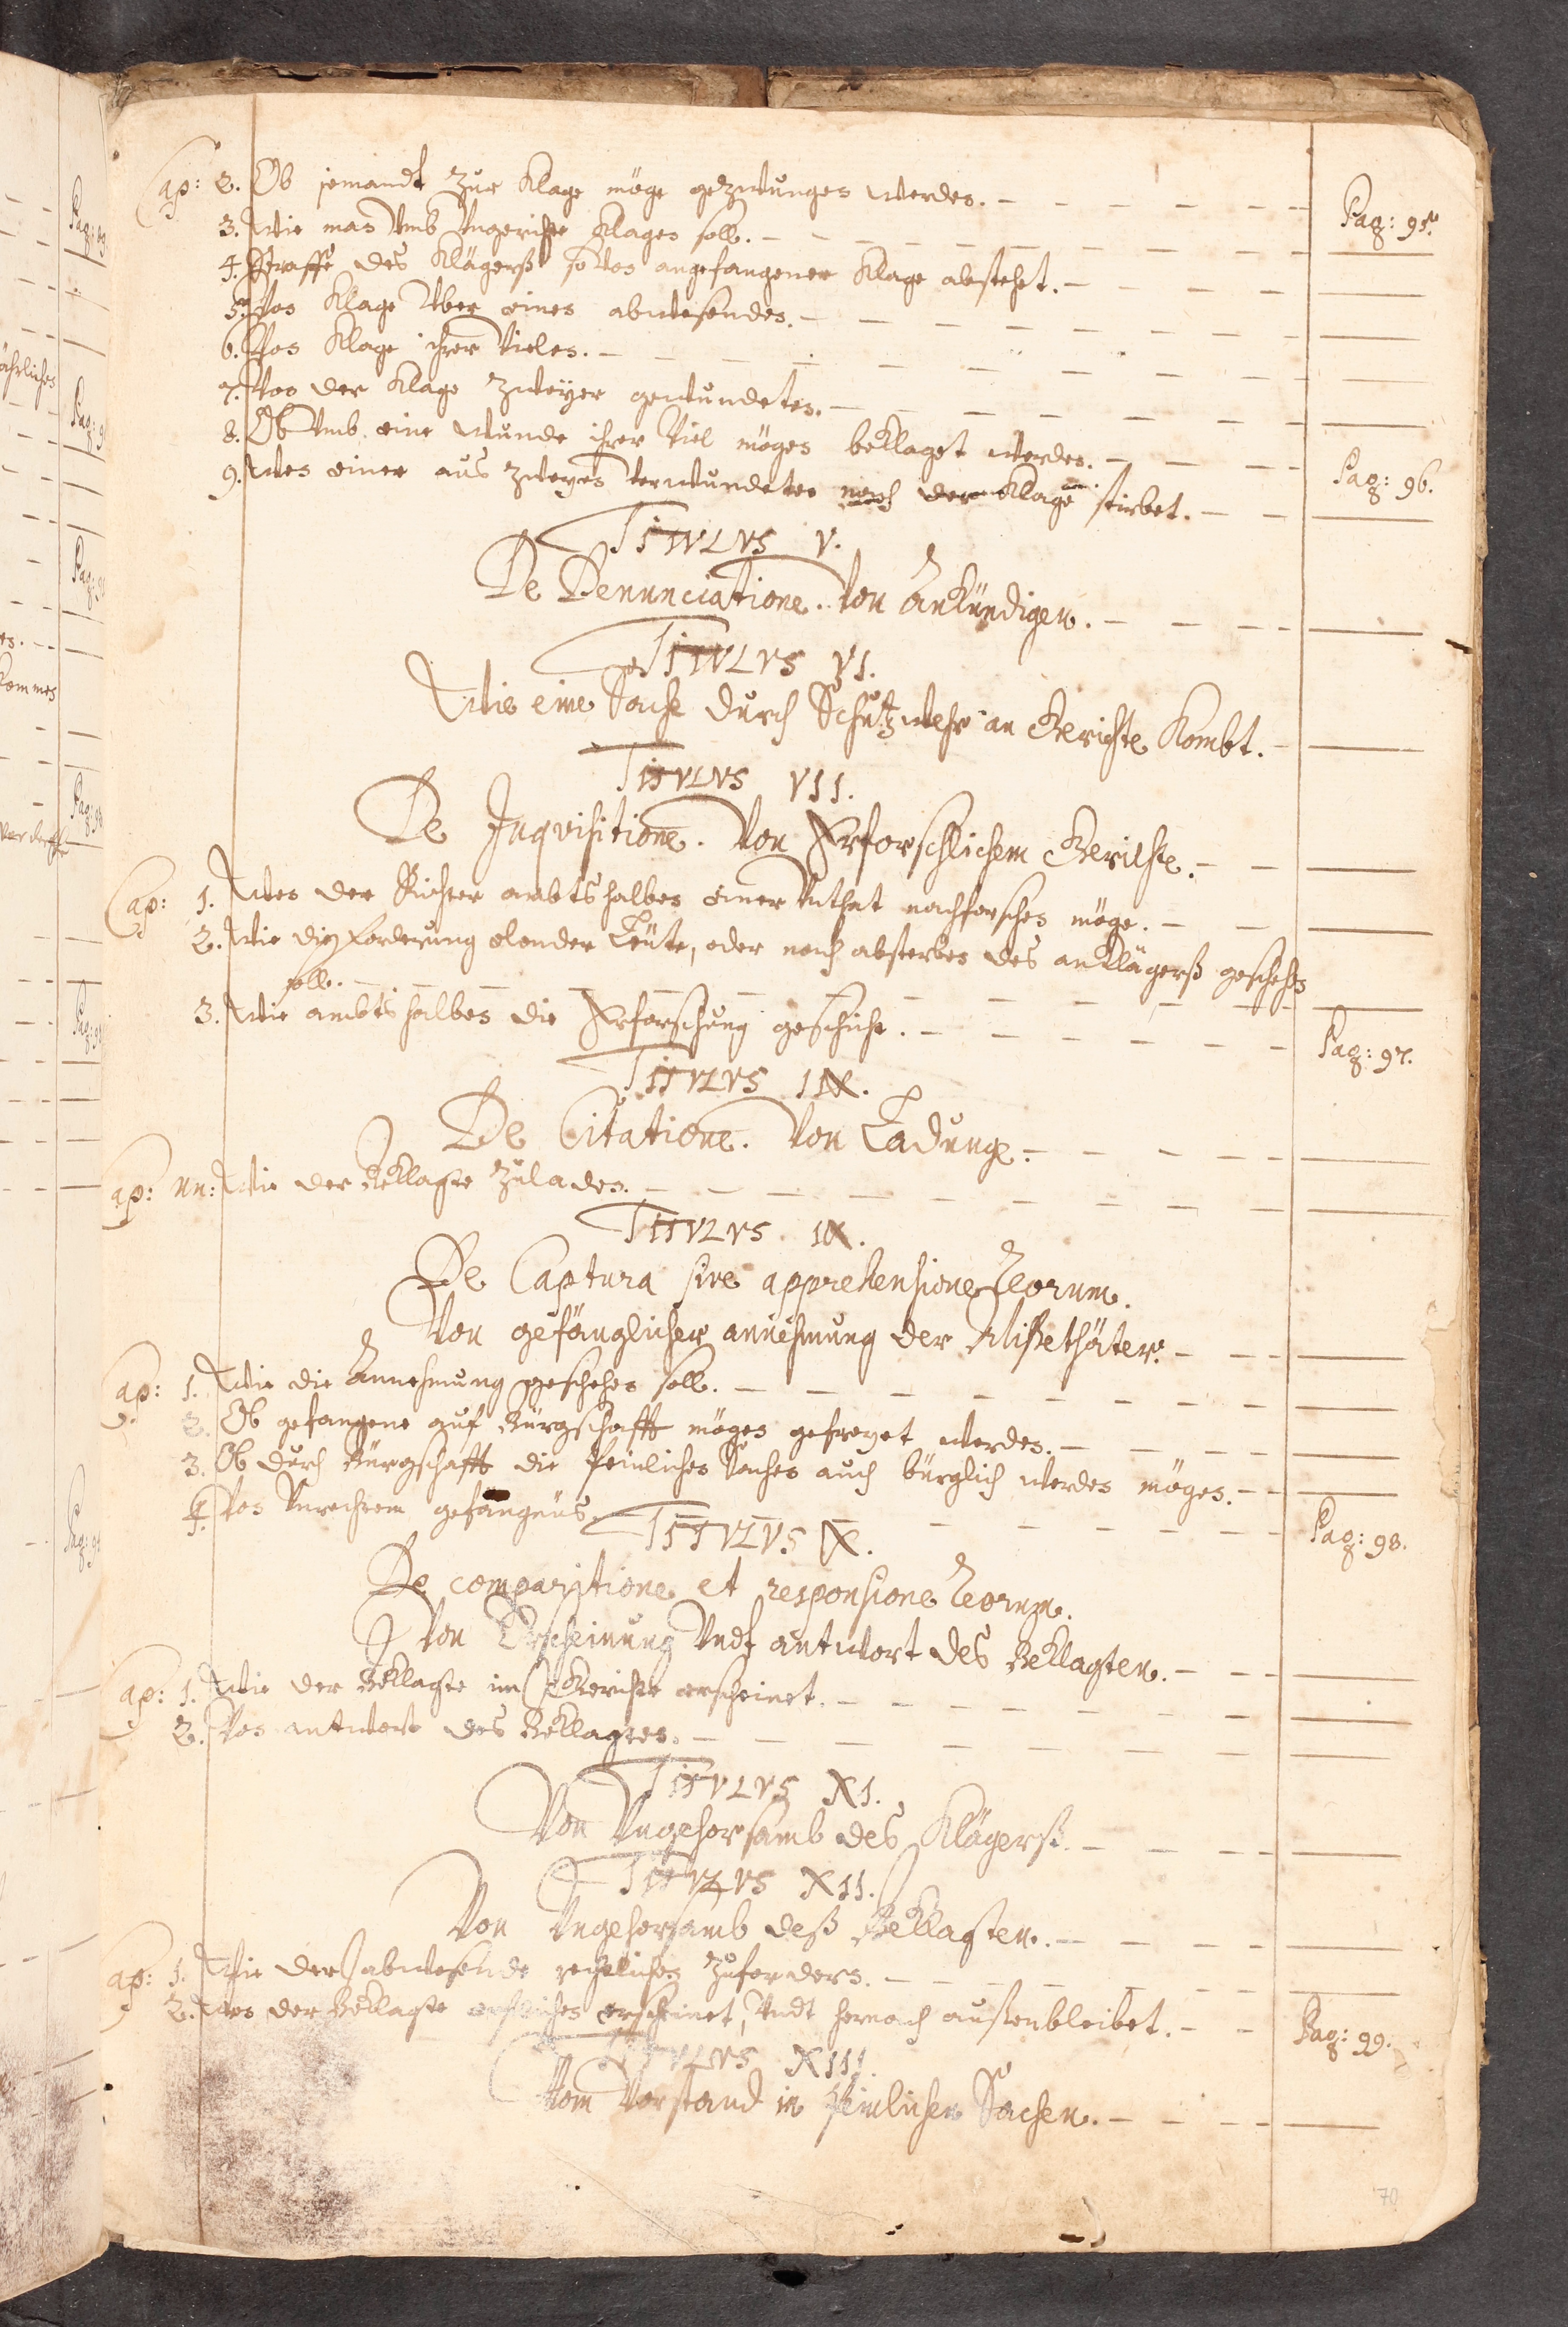 Cap: 2. Ob jemandt zur Klage möge gezwungen werden. Pag: 95.
3. Wie man Vmb Vngerichte Klagen soll.
4. Straffe des Klägerß so von angefangener Klage abstehet.
5. Von Klage Vber einen abwesenden.
6. Von Klage ihrer Vielen.
7. Von der Klage zweyer gewundeten.
8. Ob Vmb eine wunde ihrer Viel mögen beklaget werden.
9. Wen einer aus zweyen verwundeten nach der Klage stirbet. Pag: 96.
TITVLVS V.
De Denunciatione. Von Ankündigen.
TITVLVS VI.
Wie eine Sache durch Schutzwehr an Gerichte kombt.
TITVLVS VII.
De Inqvisitione. Von Erforschlichem Gerichte.
Cap: 1. Wen der Richter ambtshalben einer Vnthat nachforschen möge.
2. Wie die Forderung elender Leüte, oder nach absterben des anklägerß geschehen
soll.
3. Wie ambtshalben die Erforschung geschiehe. Pag: 97.
TITVLVS IIX.
De Citatione. Von Ladung.
Cap: un: Wie der Beklagte zuladen.
TITVLVS IX.
De Captura sive apprehensione Reorum.
Von gefänglicher annehmung der Mißethäter.
Cap: 1. Wie die Annehmung geschehen soll.
2. Ob gefangene auf Bürgschafft mögen gefreyet werden.
3. Ob durch Bürgschafft die Peinlichen Sachen auch bürglich werden mögen.
4. Von Vnrechtem gefängnüs. Pag: 98.
TITVLVS X.
De comparitione et responsione Reorum.
Von Erscheinung Vndt antwort des Beklagten.
Cap: 1. Wie der Beklagte im Gerichte erscheinet.
2. Von antwort des Beklagten.
TITVLVS XI.
Von Vngehorsamb des Klägerß.
TITVLVS XII.
Von Vngehorsamb deß Beklagten.
Cap: 1. Wie der abwesende rechtlichen zufordern.
2. Wen der Beklagte erstlichen erscheinet, Vndt hernach außenbleibet. Pag: 99.
TITVLVS XIII.
Vom Vorstand in Peinlichen Sachen.
70